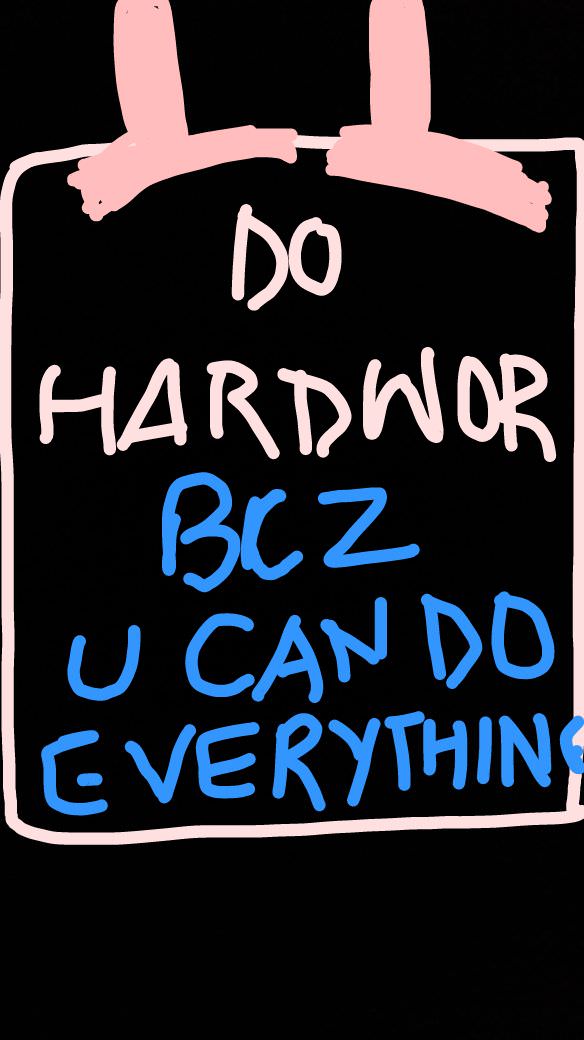 DO
HARDWOR
BCZ
U CAN DO
EVERYTHING